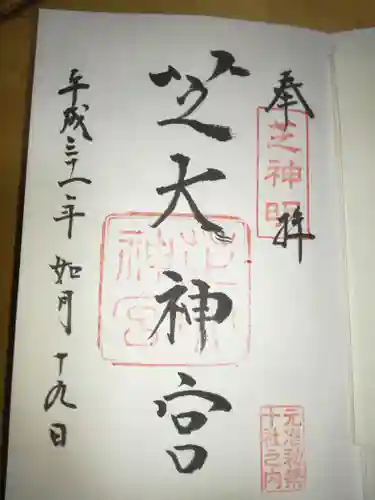 奉拝
芝神明
芝大神宮
平成三十一年如月十九日
元准勅祭
十社之内